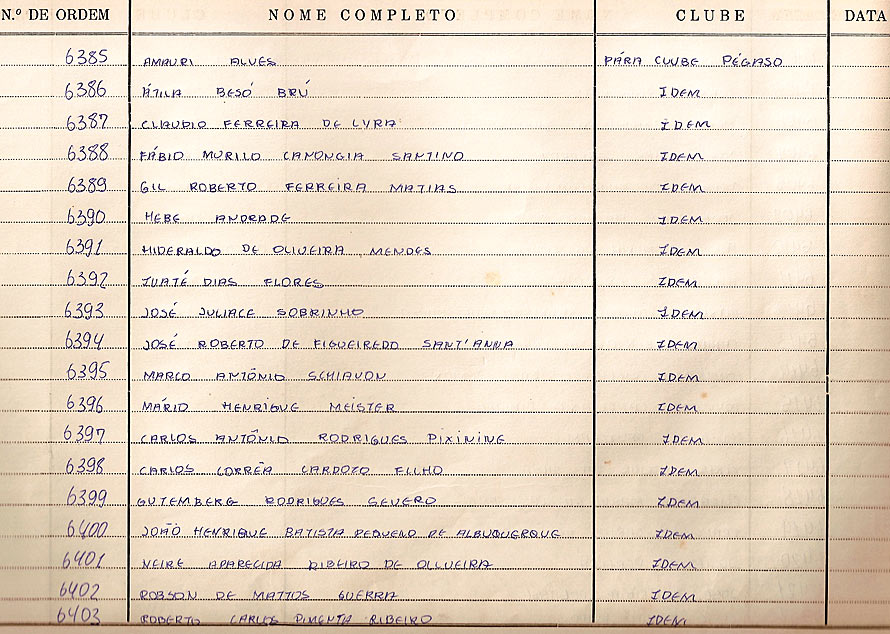 N.º DE ORDEM NOME COMPLETO CLUBE DATA
6385 AMAURI ALVES PÁRA CLUBE PÉGASO
6386 ÁTILA BESÓ BRÚ IDEM
6387 CLAUDIO FERREIRA DE LYRA IDEM
6388 FÁBIO MURILO CANONGIA SANTINO IDEM
6389 GIL ROBERTO FERREIRA MATIAS IDEM
6390 HEBE ANDRADE IDEM
6391 HIDERALDO DE OLIVEIRA MENDES IDEM
6392 DIAS FLORES IDEM
6393 JOSÉ JULIACE SOBRINHO IDEM
6394 JOSÉ ROBERTO DE FIGUEIREDO SANT'ANNA IDEM
6395 MARCO ANTÔNIO SCHIAVON IDEM
6396 MÁRIO HENRIQUE MEISTER IDEM
6397 CARLOS ANTÔNIO RODRIGUES PIXININE IDEM
6398 CARLOS CORRÊA CARDOZO FILHO IDEM
6399 GUTEMBERG RODRIGUES SEVERO IDEM
6400 JOÃO HENRIQUE BATISTA PEQUENO DE ALBUQUERQUE IDEM
6401 NEIRE APARECIDA RIBEIRO DE OLIVEIRA IDEM
6402 ROBSON DE MATTOS GUERRA IDEM
6403 ROBERTO CARLOS PIMENTA RIBEIRO IDEM